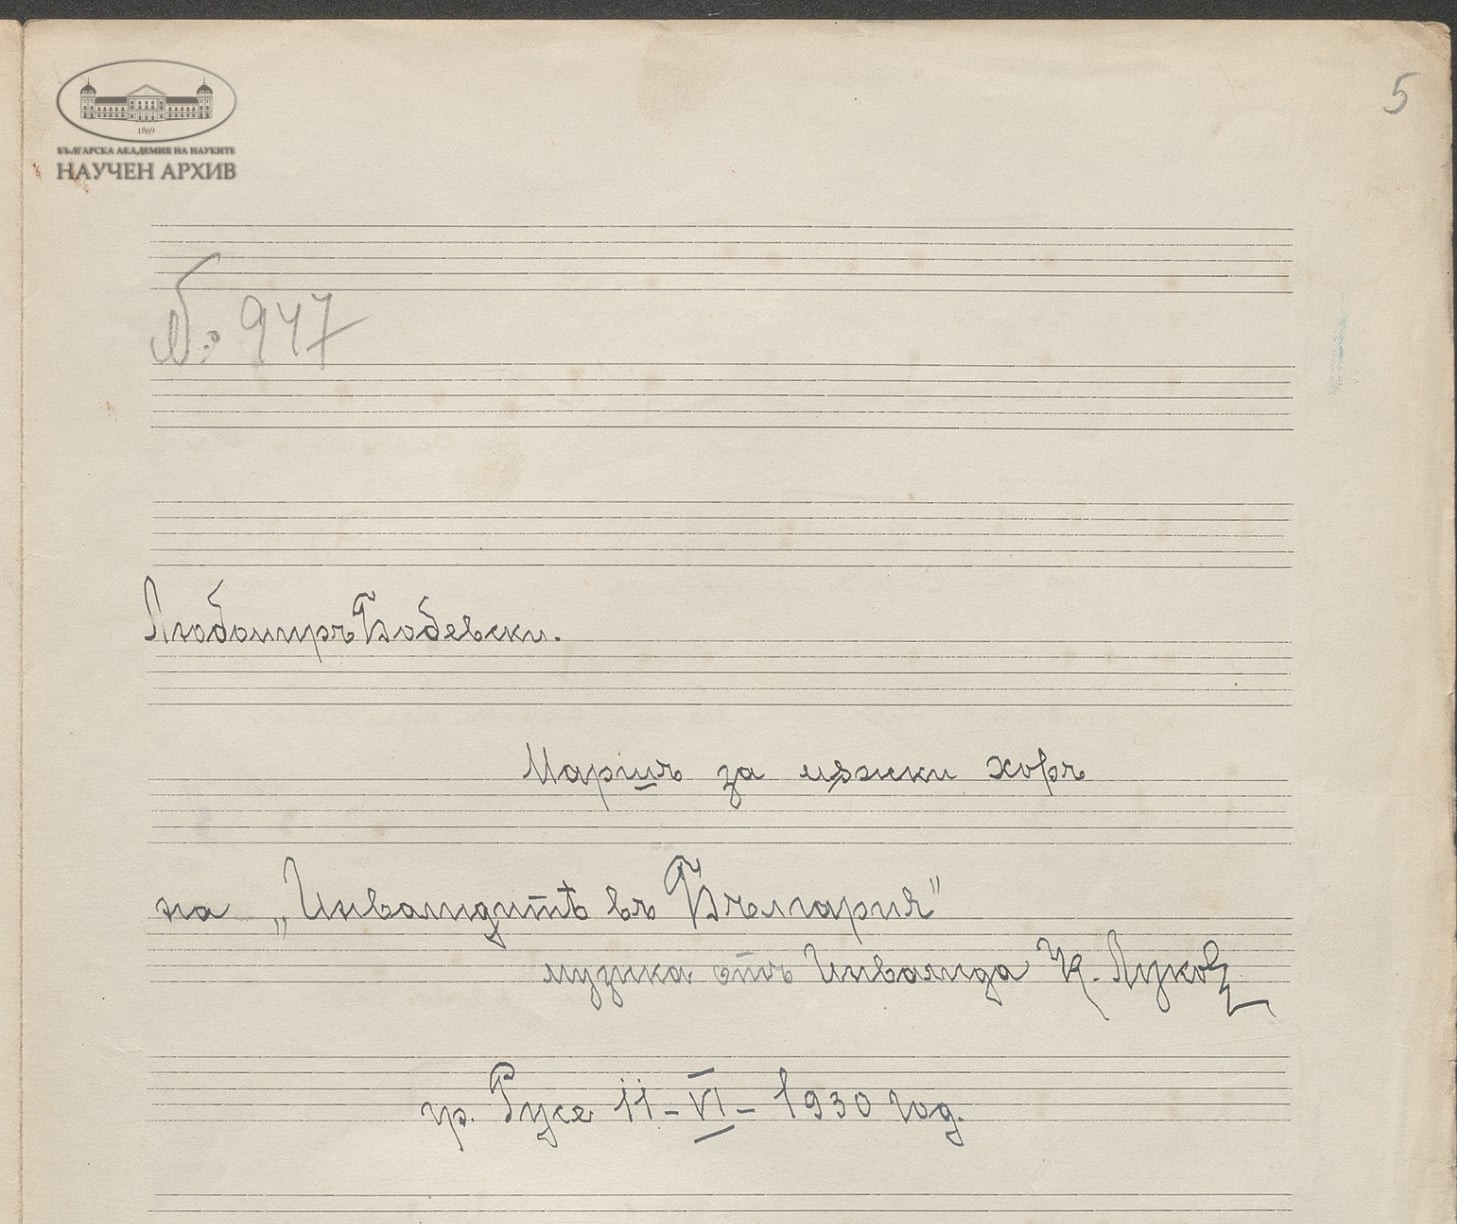 5
1869
БЪЛГАРСКА АКАДЕМИЯ НА НАУКИТЕ
НАУЧЕН АРХИВ
№ 947
Любомиръ Бобевски.
Маршъ за мѫжки хоръ
на „Инвалидитѣ въ България"
музика отъ Инвалида К. Луков
гр. Русе 11 - VI - 1930 год.